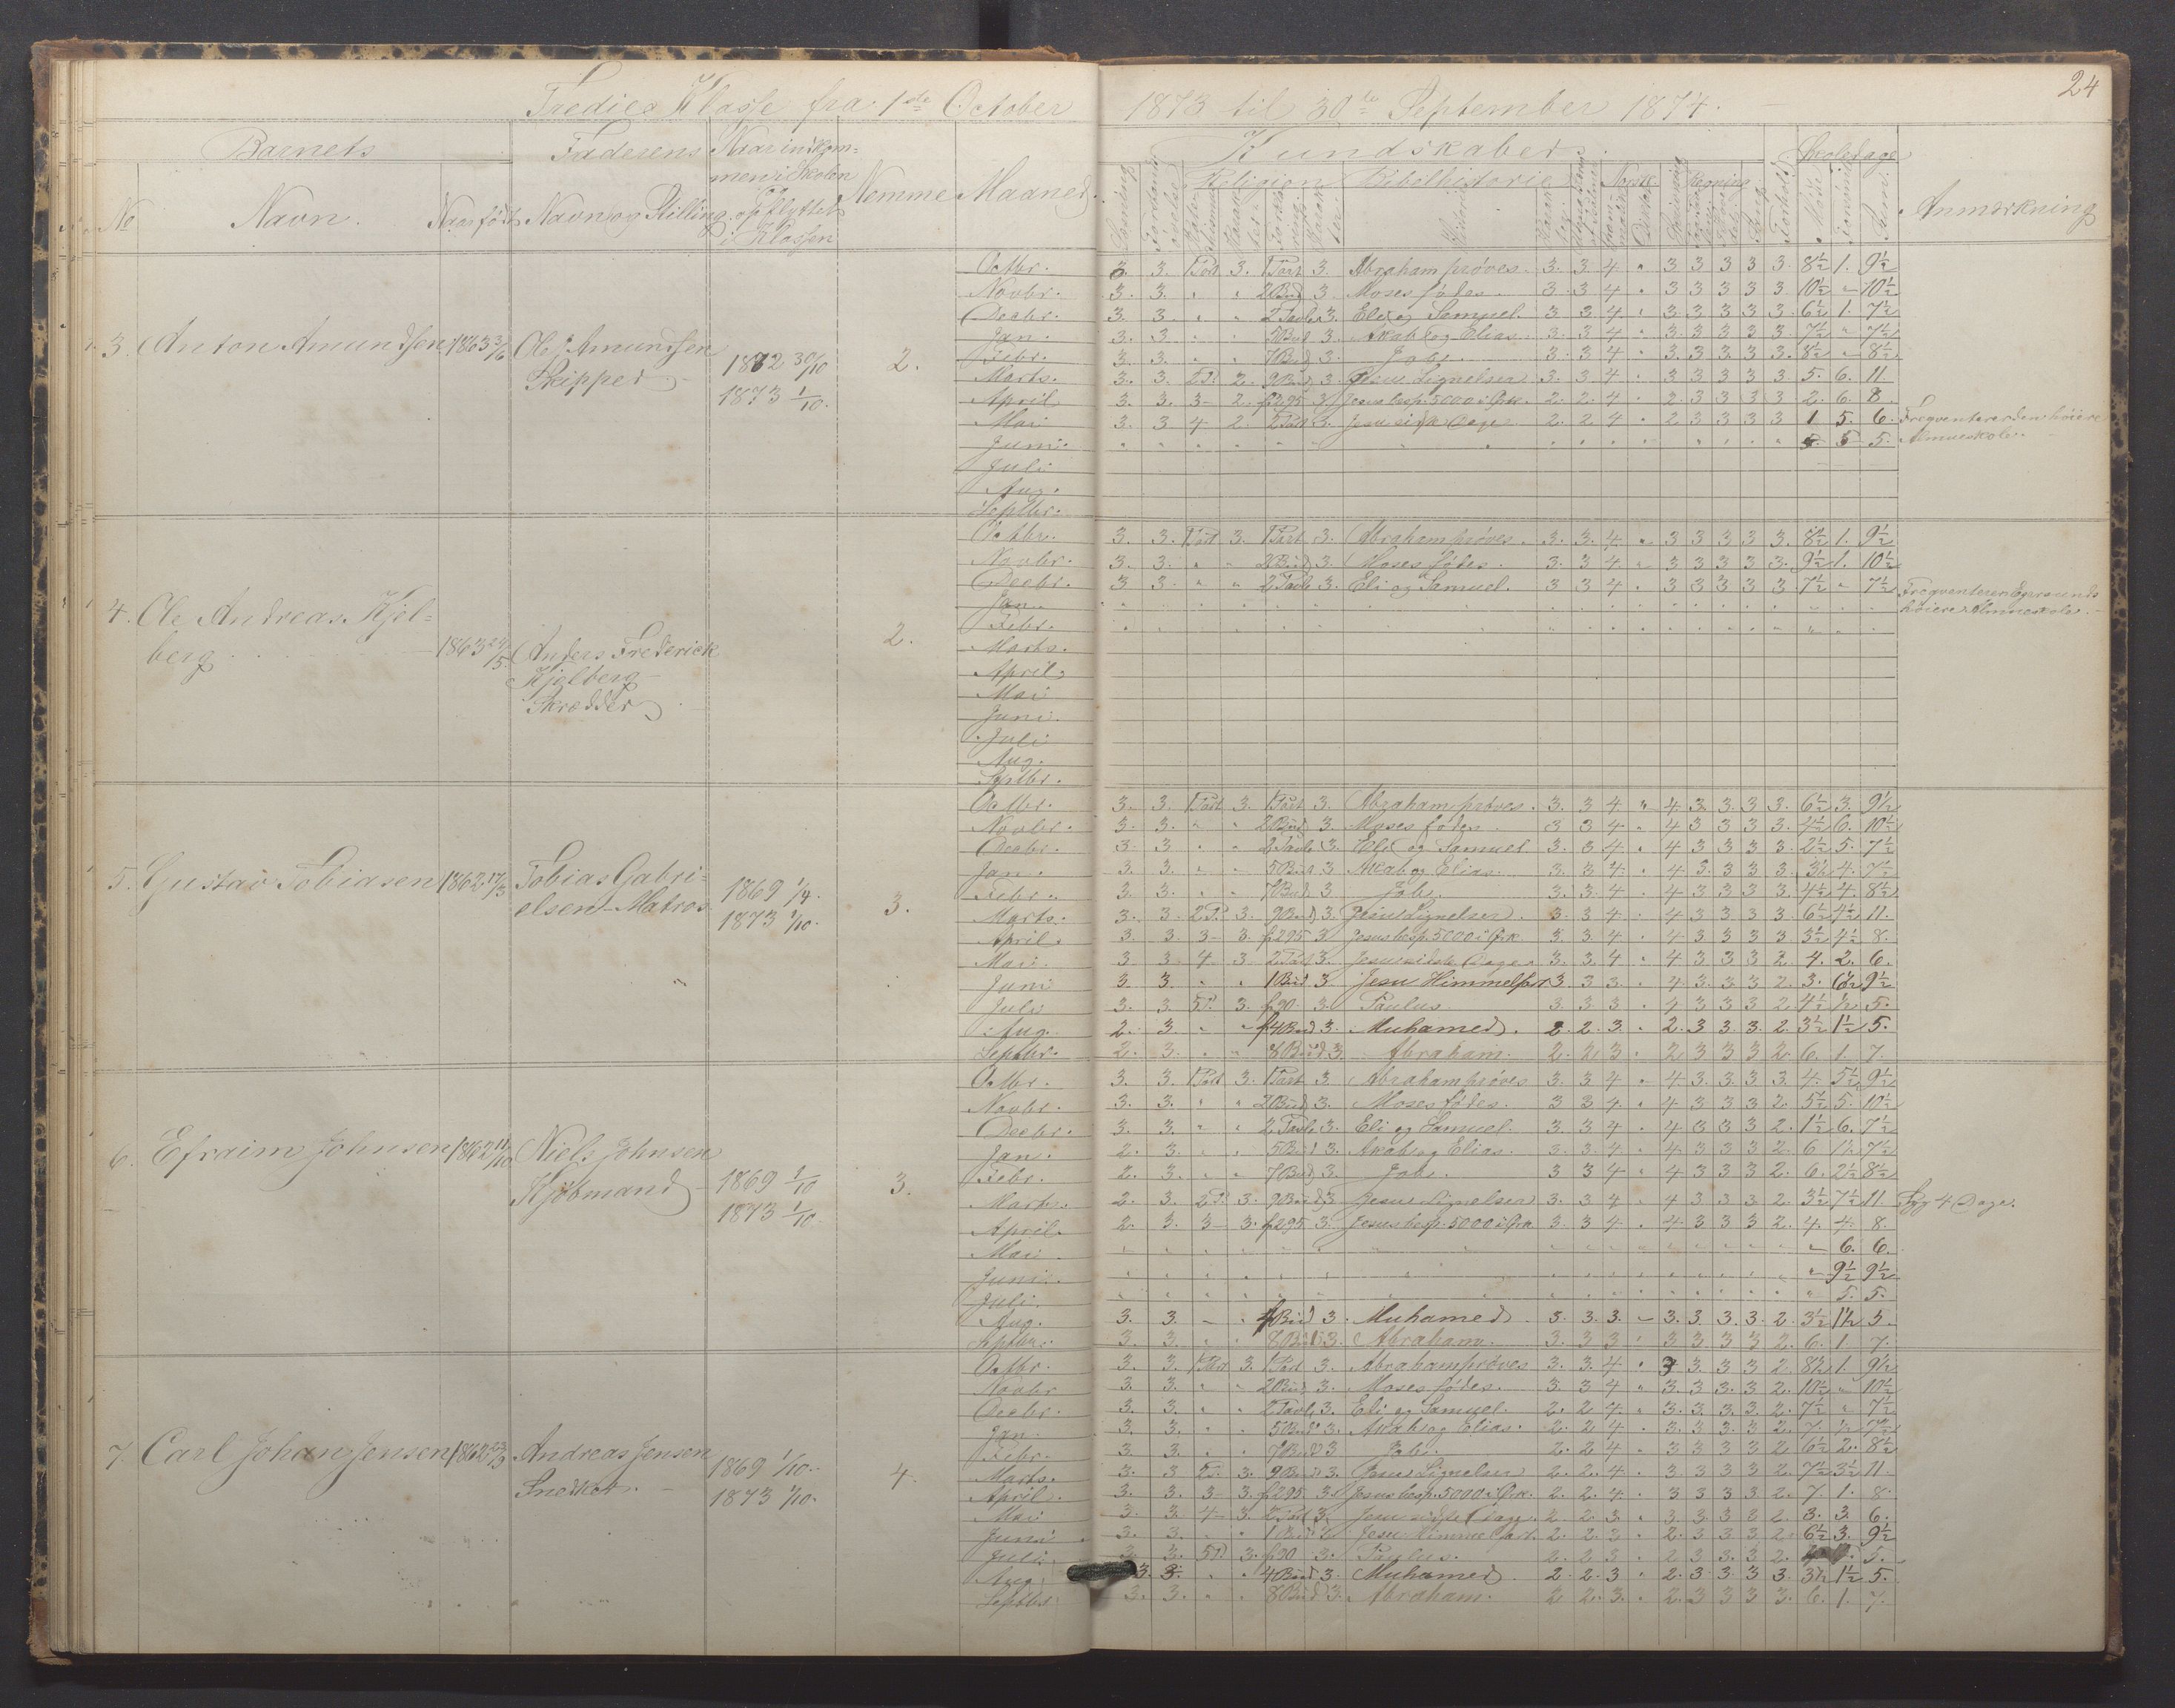 24
Tredie Klasse fra 1ste October 1873 til 30te September 1874.
Barnets
Faderens
Naar indkom-
men i Skolen
Nemme
Maaned.
Kundskaber.
Skoledage
Anmærkning
No
Navn.
Naar født
Navn og Stilling.
opflyttet
i Klassen
Religion
Bibelhistorie
Norsk.
Regning
3. Anton Amundsen 1863 3/6
Ole J Amundsen
Skipper
1872 30/10
1873 1/10.
2.
Octbr. 3. 3. 1 Part 3. 1 Part 3. Abraham prøves. 3. 3. 4 " 3 3 3 3 3. 8½ 1. 9½
Novbr. 3. 3. " " 2 Bud 3. Moses fødes. 3. 3 4 " 3 3 3 3 3. 10½ " 10½
Decbr. 3. 3. " " 2 Tavle 3. Eli og Samuel. 3 3 4 " 3 3 3 3 3. 6½ 1. 7½
Jan. 3. 3. " " 5 Bud 3. Akab og Elias. 3. 3 4 " 3. 3 3 3 3. 7½ " 7½
Febr. 3. 3. " " 7 Bud 3. Job. 3. 3 4 " 3. 3 3 3 3. 8½ " 8½
Marts. 3. 3. 2 P. 2. 9 Bud 3. Jesu Lignelser 3. 3 4 " 3 3 3 3 3. 5. 6. 11.
April 3. 3. 3 - 2. f 295 3. Jesus besp. 5000 i Ørk. 2. 2. 4 " 2. 3 3 3 3 2. 6. 8.
Mai 3. 3 4 2. 2 Part 3. Jesu sidste Dage 2. 2 4 " 2 3 3 3 3 1 5. 6. Freqventerer den høiere
Juni. 5. 5. Almueskole.
Juli
Aug.
Septbr.
4. Ole Andreas Kjel-
berg 1863 24/5
Anders Frederick
Kjelberg
Skrædder
2.
Octbr. 3. 3. 1 Part 3. 1 Part 3. Abraham prøves. 3. 3. 4. " 3 3 3 3 3. 8½ 1. 9½
Novbr. 3. 3. " " 2 Bud 3. Moses fødes. 3. 3 4 " 3 3 3 3 3. 9½ 1. 10½
Decbr. 3 3. " " 2 Tavle 3. Eli og Samuel. 3 3 4 " 3 3 3 3 3 7½ " 7½ Freqventerer Egersunds
Jan. høiere Almueskole.
Febr.
Marts.
April.
Mai
Juni.
Juli
Aug.
Septbr.
5. Gustav Tobiasen 1862 17/3
Tobias Gabri-
elsen - Matros
1869 1/4.
1873 1/10.
3.
Octbr. 3. 3. 1 Part 3. 1 Part 3. Abraham prøves. 3. 3 4 " 4. 3. 3. 3 3. 6½ 3. 9½
Novbr. 3. 3. " " 2 Bud 3. Moses fødes. 3 3 4 " 4 3 3 3 3. 4½ 6. 10½
Decbr. 3. 3 " " 2 Tavle 3. Eli og Samuel. 3. 3 4 " 4 3 3 3 3. 2½ 5. 7½
Jan. 3. 3. " " 5 Bud 3 Akab og Elias. 3. 3 4 " 4 3. 3 3 3. 3½ 4. 7½
Febr. 3 3. " " 7 Bud 3 Job. 3. 3 4 " 4 3 3 3 3. 4½ 4. 8½
Marts. 3. 3 2 P. 3. 9 Bud 3. Jesu Lignelser. 3. 3 4 " 4 3 3 3 3. 6½ 4½ 11.
April. 3. 3. 3 - 3. f 295 3. Jesus besp. 5000 i Ørk. 3. 3. 4 " 4 3 3 3 3 3½ 4½ 8.
Mai. 3. 3 4 3 2 Part 3. Jesu sidste Dage 3. 3. 4 " 4 3 3 3 2. 4. 2. 6.
Juni 3 3. " " 1 Bud 3 Jesu Himmelfart 3. 3 3. " 4 3. 3 3 2. 3. 6½ 9½
Juli 3. 3. 5 P. 3. f 20 3. Paulus 3 3 3 " 4 3 3 3 2. 4½ ½ 5.
Aug. 2. 3. " " 4 Bud 3. Muhamed. 2. 2. 3. " 2. 3 3. 3. 2. 3½ 1½ 5.
Septbr. 2. 3. " " 8 Bud 3 Abraham. 2. 2 3 " 2 3 3 3 2. 6. 1. 7.
6. Efraim Johnsen 1862 11/10
Niels Johnsen
Kjøbmand
1869 1/10
1873 1/10.
3.
Octbr. 3. 3. 1 Part 3. 1 Part 3. Abraham prøves 3. 3 4 " 4 3. 3. 3 3. 4. 5½ 9½
Novbr. 3. 3. " " 2 Bud 3. Moses fødes. 3 3 4. " 4 3 3 3 2. 5½ 5. 10½
Decbr. 3. 3. " " 2 Tavle 3. Eli og Samuel. 3 3 4 " 4 3 3 3 2. 1½ 6. 7½
Jan. 2. 3. " " 5 Bud 3. Akab og Elias. 3. 3 4. " 4 3 3 3 2. 6 1½ 7½
Febr. 2. 3. " " 7 Bud 3. Job. 3 3 4 " 4 3 3 3 2. 6. 2½ 8½
Marts. 2. 3. 2 P. 3. 9 Bud 3. Jesu Lignelser 3. 3 4 " 4 3 3 3 2. 3½ 7½ 11. Syg 4 Dage.
April. 2. 3. 3 - 3. f 295 3. Jesus besp. 5000 i Ørk 3. 3 4. " 4 3 3 3 2. 4. 4. 8.
Mai " 6. 6.
Juni " 9½ 9½
Juli. " 5. 5.
Aug. 3. 3. " " 4 Bud 3. Muhamed 3. 3. 3. " 3. 3. 3. 3. 2. 3½ 1½ 5.
Septbr. 3. 3. " " 8 Bud 3. Abraham. 3. 3. 3 " 3 3 3 3 2. 6. 1. 7.
7. Carl Johan Jensen 1862 23/3
Andreas Jensen
Snedker.
1869 1/10.
1873 1/10.
4.
Octbr. 3. 3. 1 Part 3. 1 Part 3. Abraham prøves 3. 3. 4 " 3 3. 3 3 2. 8½ 1. 9½
Novbr 3. 3. " " 2 Bud 3. Moses fødes. 3. 3 4 " 3. 3 3. 3 2. 10½ " 10½
Decbr. 3. 3. " " 2 Tavle 3. Eli og Samuel. 2. 2 4. " 3. 3. 3. 3. 2. 7½ " 7½
Jan. 3. 3. " " 5 Bud 3. Akab og Elias. 2. 2 4 " 3. 3. 3. 3 2. 7. ½ 7½
Febr. 3 3. " " 7 Bud 3 Job. 2. 2 4 " 3 3 3 3 2. 6½ 2. 8½
Marts. 3. 3 2 P. 3. 9 Bud 3. Jesu Lignelser 2. 2. 4. " 3 3 3 3 2. 7½ 3½ 11.
April. 3. 3. 3 - 3. f 295 3. Jesus besp. 5000 i Ørk. 2. 2. 4 " 3 3 3 3 2. 7. 1. 8.
Mai 3. 3 4 - 3. 2 Part 3. Jesu sidste Dage. 2. 2. 3. " 3 3 3 3 2. 3. 3. 6.
Juni 3. 3. " " 1 Bud Jesu Himmelfart. 2. 2. 3 " 2. 3 3 3 2. 6½ 3. 9½
Juli. 3. 3. 5 P. 3. f 20 3. Paulus. 2. 2 3 " 2 3 3. 3 2. 5.
Aug. 3. 3. " " 4 Bud 3. Muhamed. 2. 2. 3 " 2. 3 3 3 3. 3½ 1½ 5.
Septbr. 3. 3. " " 8 Bud 3. Abraham. 2. 2. 3. " 2. 3 3 3 3. 6. 1. 7.